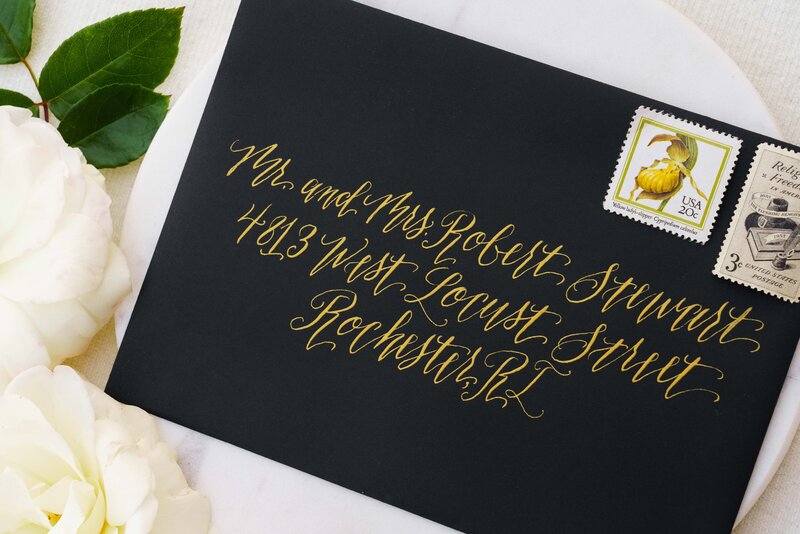 Mr. and Mrs. Robert Stewart
4813 West Locust Street
Rochester, RI
USA
20c
Yellow lady's-slipper Cypripedium calceolus
Religi
Freed
IN AMERI
1957
3¢
UNITED STATES
POSTAGE